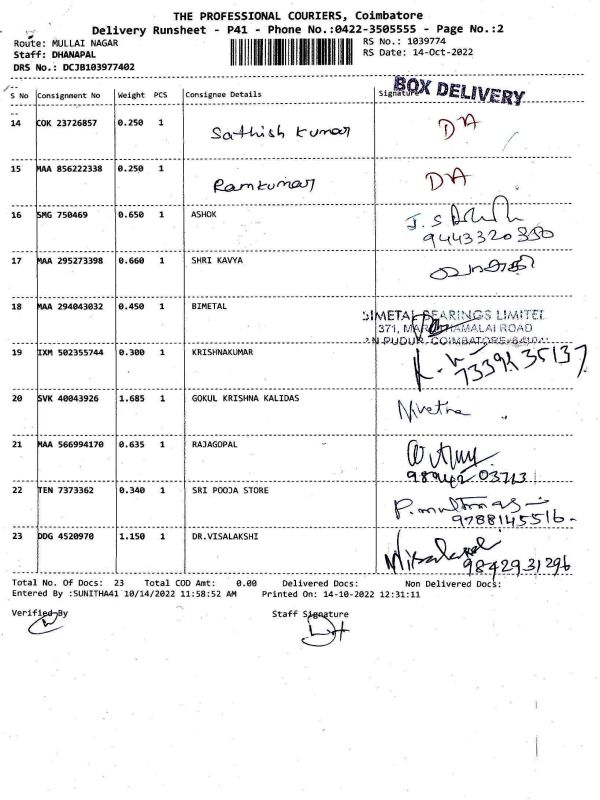 THE PROFESSIONAL COURIERS, Coimbatore
Delivery Runsheet - P41 - Phone No.:0422-3505555 - Page No.:2
Route: MULLAI NAGAR RS No.: 1039774
Staff: DHANAPAL RS Date: 14-Oct-2022
DRS No.: DCJB103977402
BOX DELIVERY
S No Consignment No Weight PCS Consignee Details Signature
14 COK 23726857 0.250 1 Sathish Kumar DA
15 MAA 856222338 0.250 1 Ramkumar DA
16 SMG 750469 0.650 1 ASHOK
17 MAA 295273398 0.660 1 SHRI KAVYA
18 MAA 294043032 0.450 1 BIMETAL BIMETAL BEARINGS LIMITED
371, MARUTHAMALAI ROAD
N PUDUR, COIMBATORE-
19 IXM 502355744 0.300 1 KRISHNAKUMAR
7339435137
20 SVK 40043926 1.685 1 GOKUL KRISHNA KALIDAS Nivetha
21 MAA 566994170 0.635 1 RAJAGOPAL
22 TEN 7373362 0.340 1 SRI POOJA STORE
9788145516
23 DDG 4520970 1.150 1 DR.VISALAKSHI Visalakshi
9842931296
Total No. Of Docs: 23 Total COD Amt: 0.00 Delivered Docs: Non Delivered Docs:
Entered By :SUNITHA41 10/14/2022 11:58:52 AM Printed On: 14-10-2022 12:31:11
Verified By Staff Signature